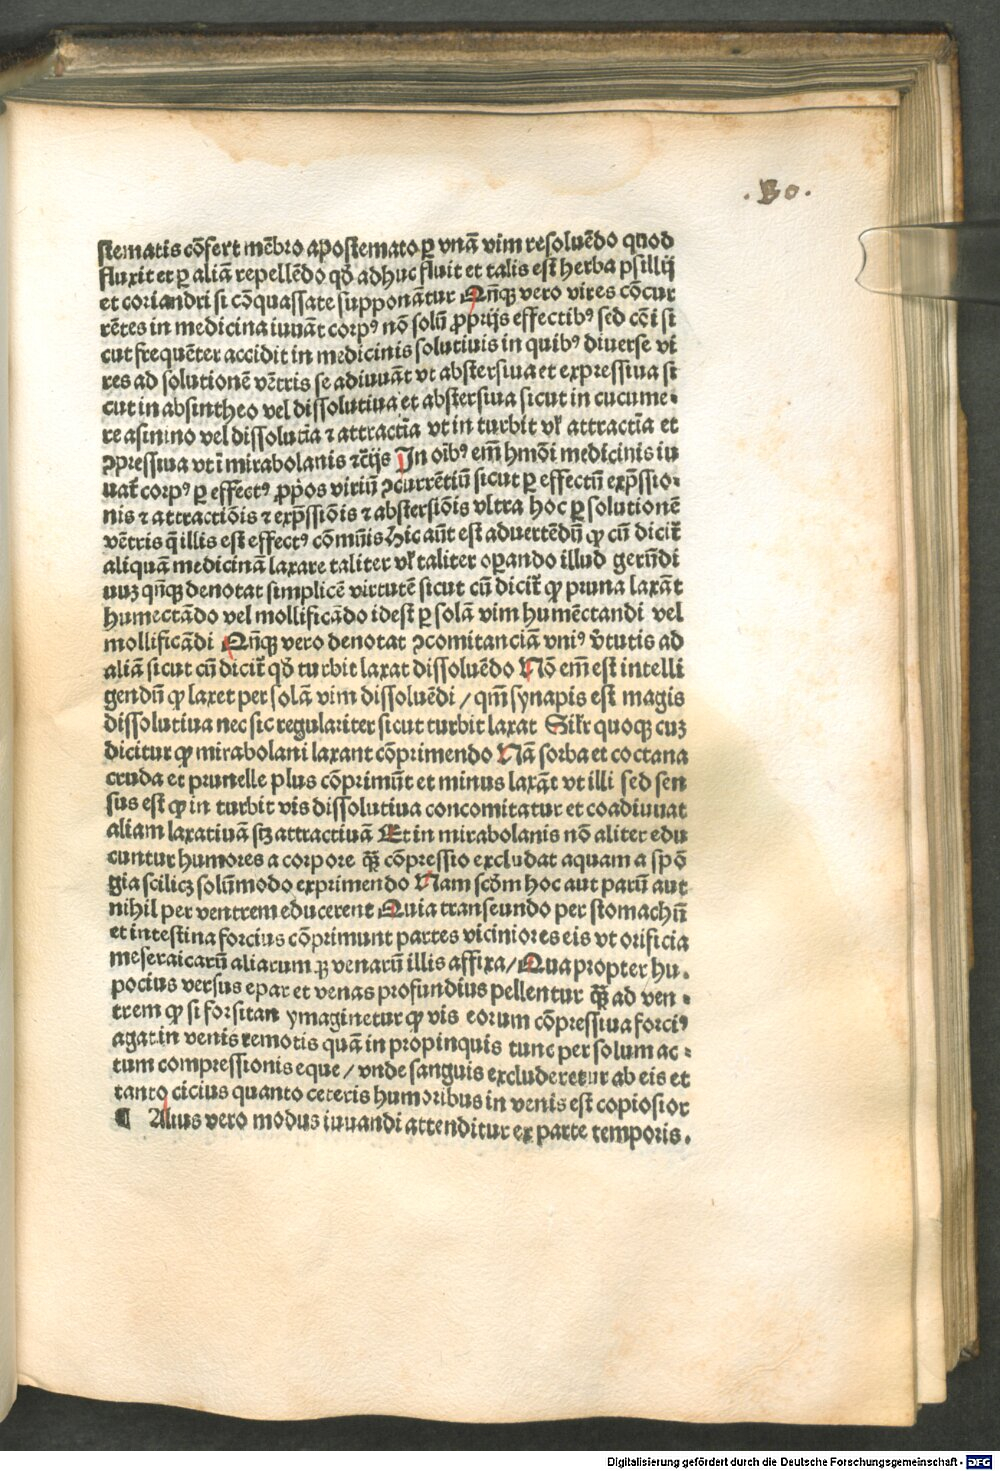 . 30 .
stematis cōfert mēbro apostemato ꝑ vnā vim resoluēdo quod
fluxit et ꝑ aliā repellēdo qđ adhuc fluit et talis est herba psillij
et coriandri si cōquassate supponātur Qn̄qꝫ vero vires cōcur
rētes in medicina iuuāt corpꝰ nō solū ꝓprijs effectibꝰ sed cōi si
cut frequēter accidit in medicinis solutiuis in quibꝰ diuerse vi
res ad solutionē vētris se adiuuāt vt abstersiua et expressiua si
cut in absintheo vel dissolutiua et abstersiua sicut in cucume-
re asinino vel dissolutīa ⁊ attractīa vt in turbit vl̓ attractīa et
ꝯpressiua vt ī mirabolanis ⁊c̄ijs In oībꝰ em̄ hmōi medicinis iu
uat̄ corpꝰ ꝑ effectꝰ ꝓp̄os viriū ꝯcurrētiū sicut ꝑ effectū exp̄ssio-
nis ⁊ attractiōis ⁊ exp̄ssiōis ⁊ abstersiōis vltra hoc ꝑ solutionē
vētris q̄ illis est effectꝰ cōmūis Hic aūt est aduertēdū ꝙ cū dicit̄
aliquā medicinā laxare taliter vl̓ taliter oꝑando illud gerūdi
uuꝫ qn̄qꝫ denotat simplicē virtutē sicut cū dicit̄ ꝙ pruna laxāt
humectādo vel mollificādo idest ꝑ solā vim humēctandi vel
mollificādi Qn̄qꝫ vero denotat ꝯcomitanciā vniꝰ v̄tutis ad
aliā sicut cū dicit̄ qđ turbit laxat dissoluēdo Nō em̄ est intelli
gendū ꝙ laxet per solā vim dissoluēdi / qm̄ synapis est magis
dissolutiua nec sic regulariter sicut turbit laxat Sil̓r quoqꝫ cuꝫ
dicitur ꝙ mirabolani laxant cōprimendo Nā sorba et coctana
cruda et prunelle plus cōprimūt et minus laxāt vt illi sed sen
sus est ꝙ in turbit vis dissolutiua concomitatur et coadiuuat
aliam laxatiuā sꝫ attractiuā Et in mirabolanis nō aliter edu
cuntur humores a corpore q̄ꝫ cōpressio excludat aquam a spō
gia scilicꝫ solūmodo exprimendo Nam scōm hoc aut parū aut
nihil per ventrem educerent Quia transeundo per stomachū
et intestina forcius cōprimunt partes viciniores eis vt orificia
meseraicarū aliarum qꝫ venarū illis affixa / Qua propter hu-
pocius versus epar et venas profundius pellentur q̄ꝫ ad ven-
trem ꝙ si forsitan ymaginetur ꝙ vis eorum cōpressiua forciꝰ
agat in venis remotis quā in propinquis tunc per solum ac-
tum compressionis eque / vnde sanguis excluderetur ab eis et
tanto cicius quanto ceteris humoribus in venis est copiosior
¶ Alius vero modus iuuandi attenditur ex parte temporis.
Digitalisierung gefördert durch die Deutsche Forschungsgemeinschaft - DFG